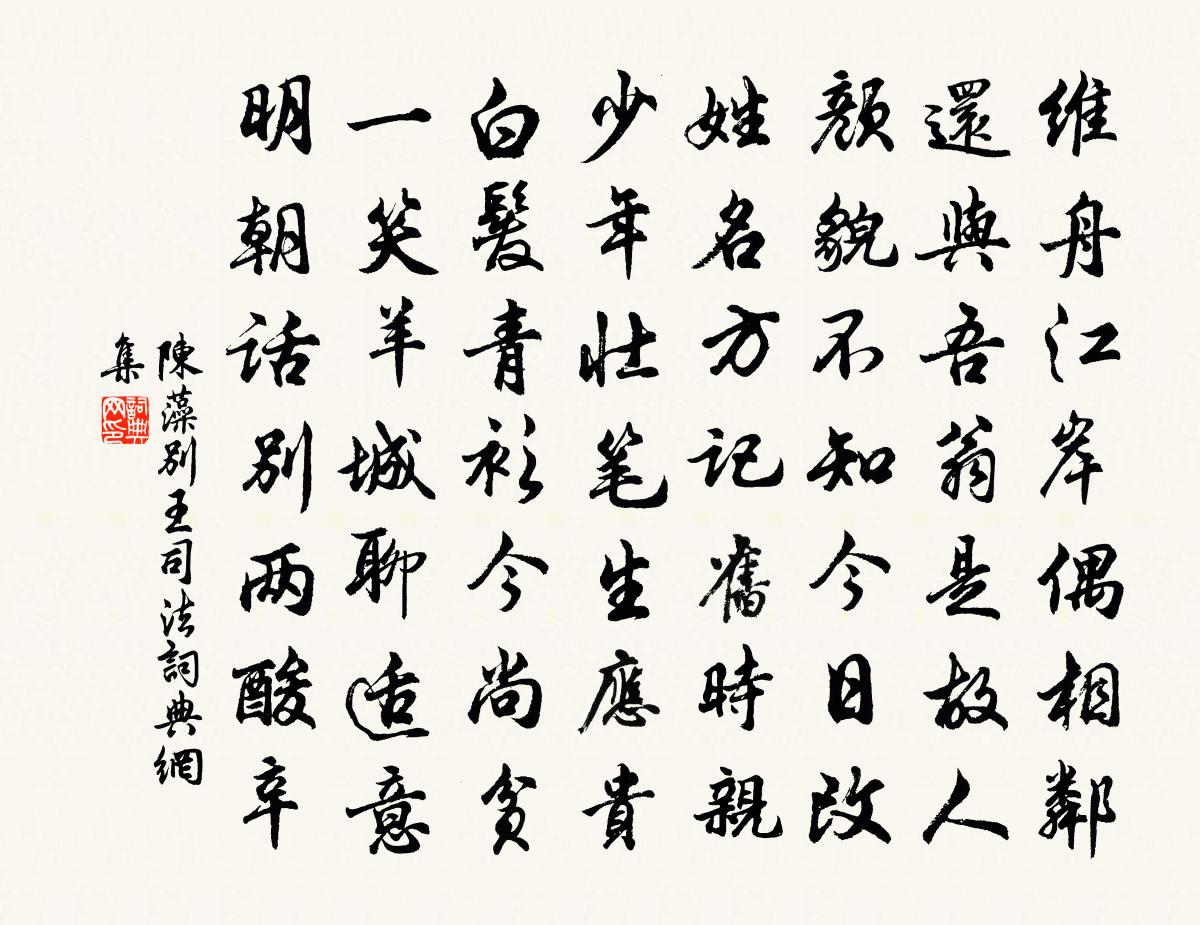 维舟江岸偶相鄰
還與吾翁是故人
顏貌不知今日改
姓名方記舊時親
少年壯笔生應貴
白髮青衫今尚貧
一笑羊城聊适意
明朝话别兩酸辛
陳藻别王司法詞典網
集
詞典网印